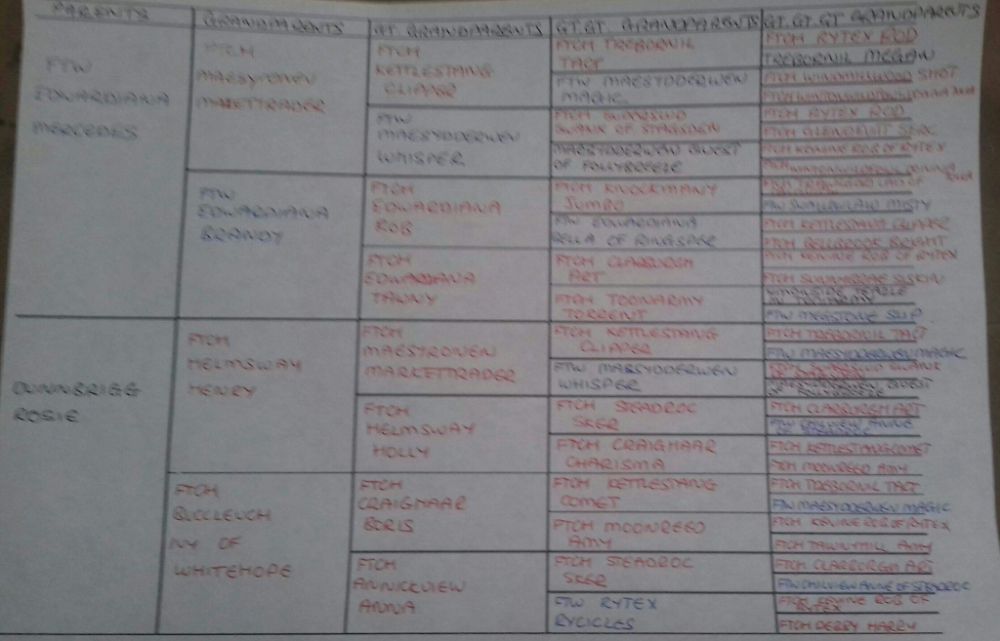 PARENTS
GRANDPARENTS
GT. GRANDPARENTS
GT.GT. GRANDPARENTS
GT.GT.GT GRANDPARENTS
FTW
EDWARDIANA
MERCEDES
FTCH
MAESYRONEN
MARKETTRADER
FTCH
KETTLESTANG
CLIPPER
FTCH TREBORNIL
TACT
FTCH RYTEX ROD
TREBORNIL MEGAN
FTW MAESYDDERWEN
MAGIC
FTCH WINDMILLWOOD SHOT
FTW
MAESYDDERWEN
WHISPER
SWANK OF STAGSDEN
FTCH RYTEX ROD
MAESYDDERWEN GUEST
OF FOLLYBREEZE
FTCH KENINE ROB OF RYTEX
FTW
EDWARDIANA
BRANDY
FTCH
EDWARDIANA
ROB
FTCH KNOCKMANY
JUMBO
FTW SWALLOWLAW MISTY
FTW EDWARDIANA
BELLA OF RINGSPER
FTCH KETTLESTANG CLIPPER
FTCH BELLBROOK BRIGHT
FTCH
EDWARDIANA
TAWNY
FTCH CLARBURGH
ART
FTCH KENINE ROB OF RYTEX
FTCH SUNNYBRAE SISKIN
FTCH TOONARMY
TORRENT
FTW MEGSTONE SLIP
DUNNBRIGG
ROSIE
FTCH
HELMSWAY
HENRY
FTCH
MAESYRONEN
MARKETTRADER
FTCH KETTLESTANG
CLIPPER
FTCH TREBORNIL TACT
FTW MAESYDDERWEN MAGIC
FTW MAESYDDERWEN
WHISPER
MAESYDDERWEN GUEST
OF FOLLYBREEZE
FTCH
HELMSWAY
HOLLY
FTCH STEADROC
SKER
FTCH CLARBURGH ART
FTCH CRAIGHAAR
CHARISMA
FTCH KETTLESTANG COMET
FTCH MOONREED AMY
FTCH
BUCCLEUCH
NY OF
WHITEHOPE
FTCH
CRAIGHAAR
BORIS
FTCH KETTLESTANG
COMET
FTCH TREBORNIL TACT
FTW MAESYDDERWEN MAGIC
FTCH MOONREED
AMY
FTCH KENINE ROB OF RYTEX
FTCH TAWNYHILL AMY
FTCH
ANNICKVIEW
ANNA
FTCH STEADROC
SKER
FTCH CLARBURGH ART
FTW CHILVIEW ANNE OF STEADROC
FTW RYTEX
RYCICLES
FTCH KENINE ROB OF
RYTEX
FTCH DERRY HARRY